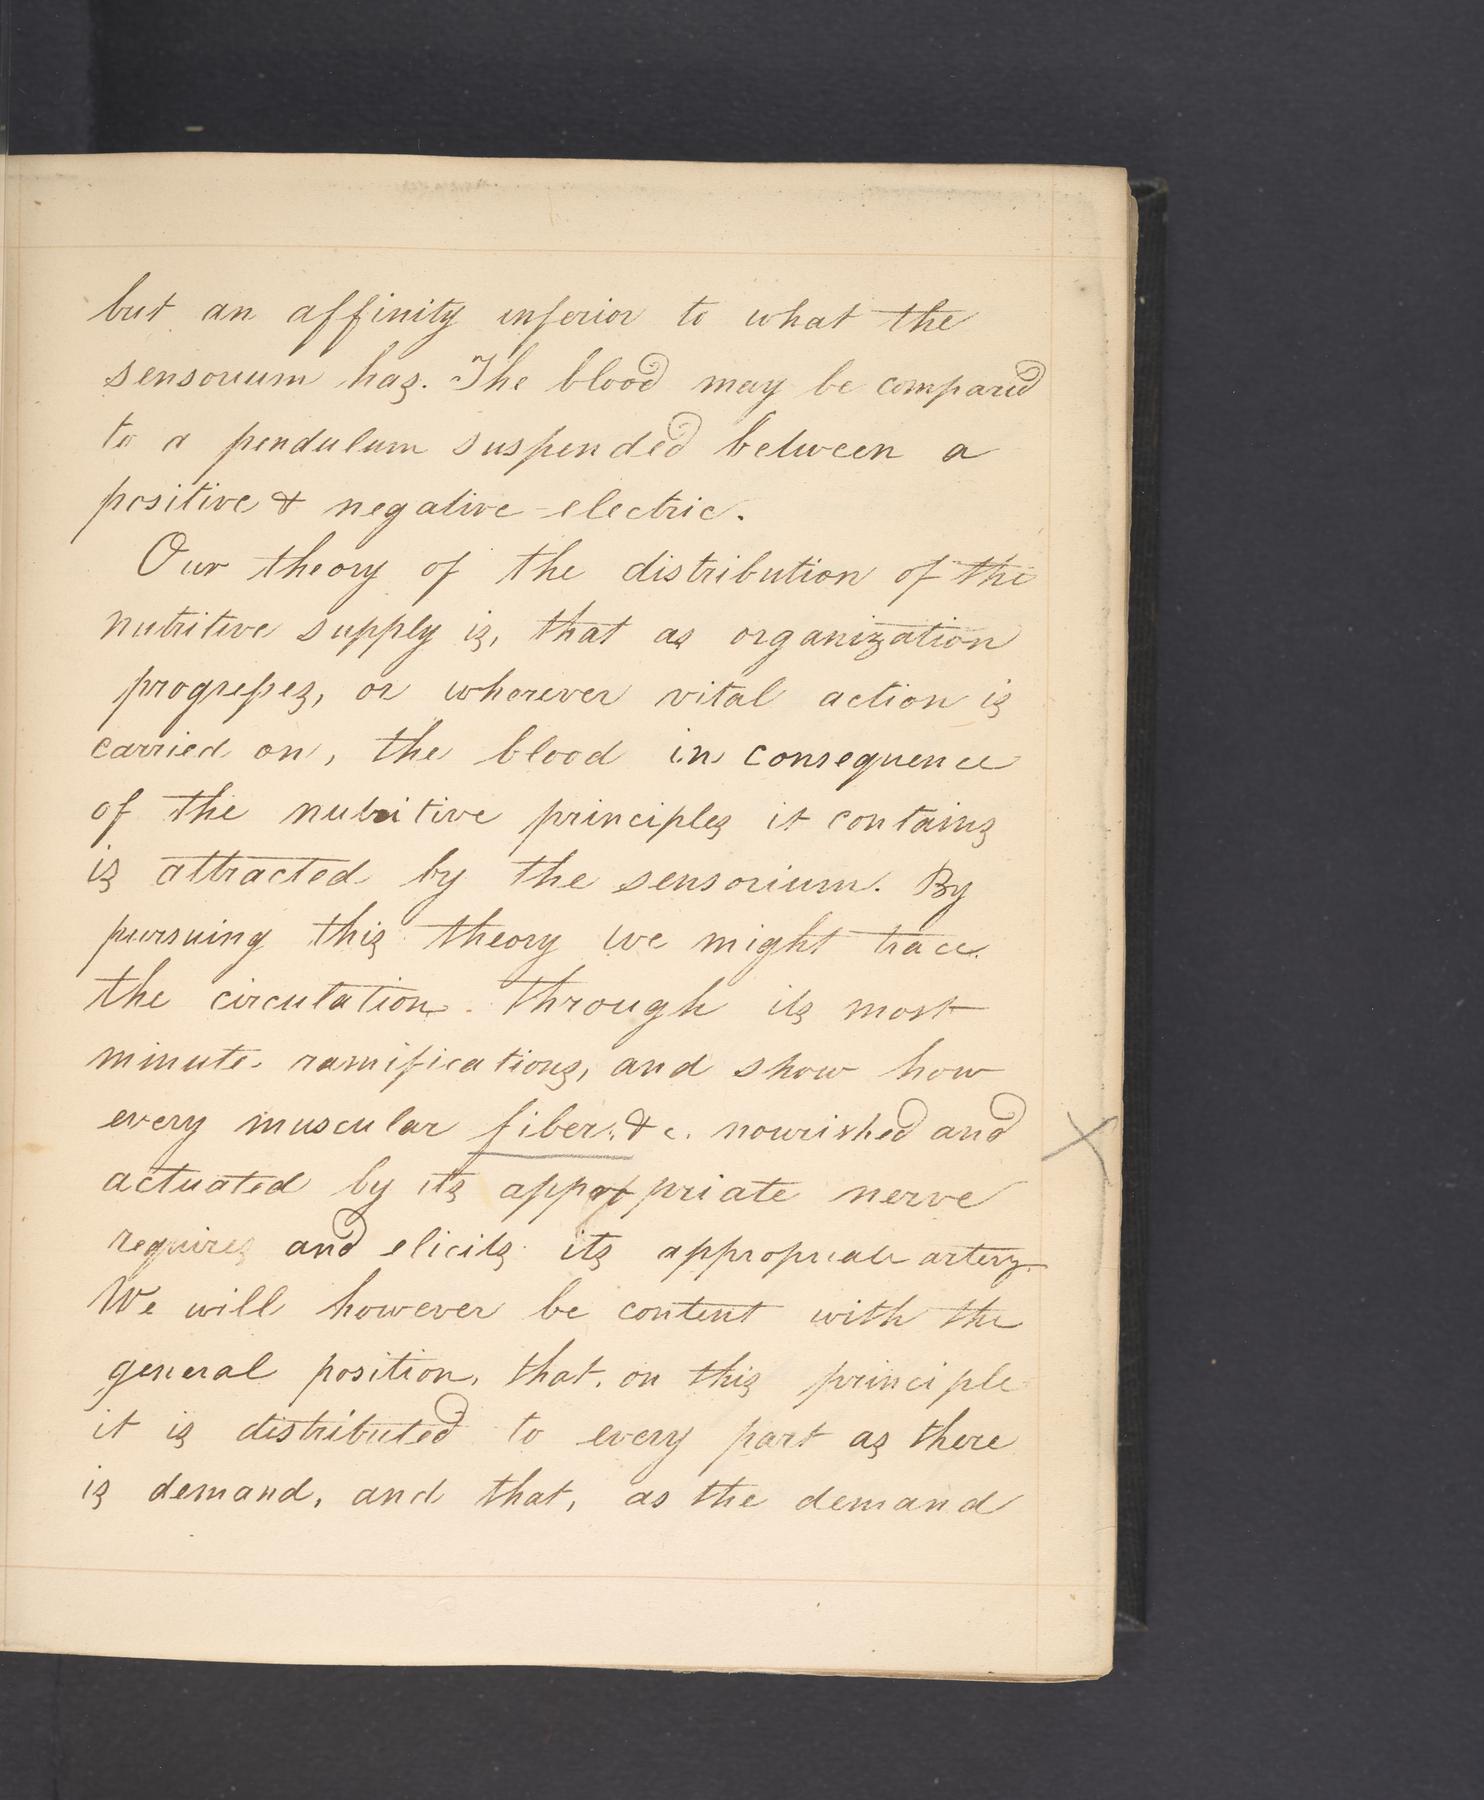 but an affinity inferior to what the
sensorium has. The blood may be compared
to a pendulum suspended between a
positive & negative electric.
Our theory of the distribution of the
nutritive supply is, that as organization
progresses, or wherever vital action is
carried on, the blood in consequence
of the nutritive principles it contains
is attracted by the sensorium. By
pursuing this theory we might trace
the circulation through its most
minute ramifications, and show how
every muscular fiber, &c. nourished and
actuated by its appropriate nerve
requires and elicits its appropriate artery.
We will however be content with the
general position, that, on this principle
it is distributed to every part as there
is demand, and that, as the demand